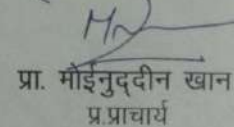 प्रा. मोईनुद्दीन खान
प्र.प्राचार्य